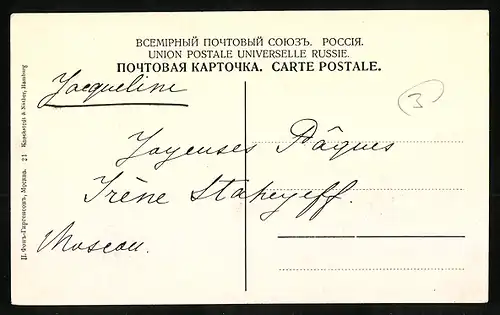 ВСЕМІРНЫЙ ПОЧТОВЫЙ СОЮЗЪ. РОССІЯ.
UNION POSTALE UNIVERSELLE RUSSIE.
ПОЧТОВАЯ КАРТОЧКА. CARTE POSTALE.
Jacqueline
3
Joyeuses Pâques
Irène Stakeyeff.
Moscou.
П. Фонъ-Гиргенсонъ, Москва. 23 Knackstedt & Näther, Hamburg